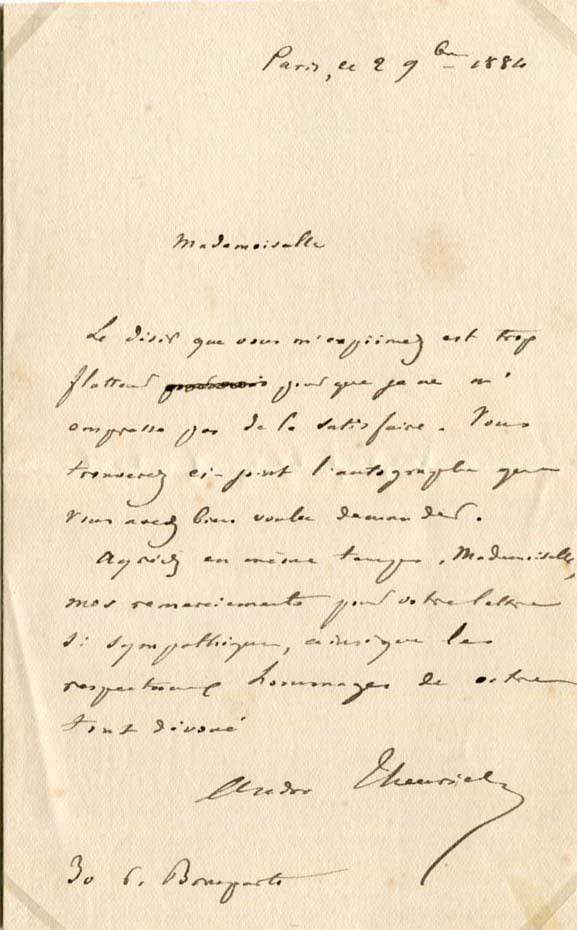 Paris, le 2 9bre 1884
Mademoiselle
Le désir que vous m'exprimez est trop
flatteur pour que je ne m'
empresse pas de le satisfaire. Vous
trouverez ci-joint l'autographe que
vous avez bien voulu demander.
Agréez en même temps, Mademoiselle,
mes remerciements pour votre lettre
si sympathique, ainsi que les
respectueux hommages de votre
tout dévoué
André Theuriet
30 r. Bonaparte